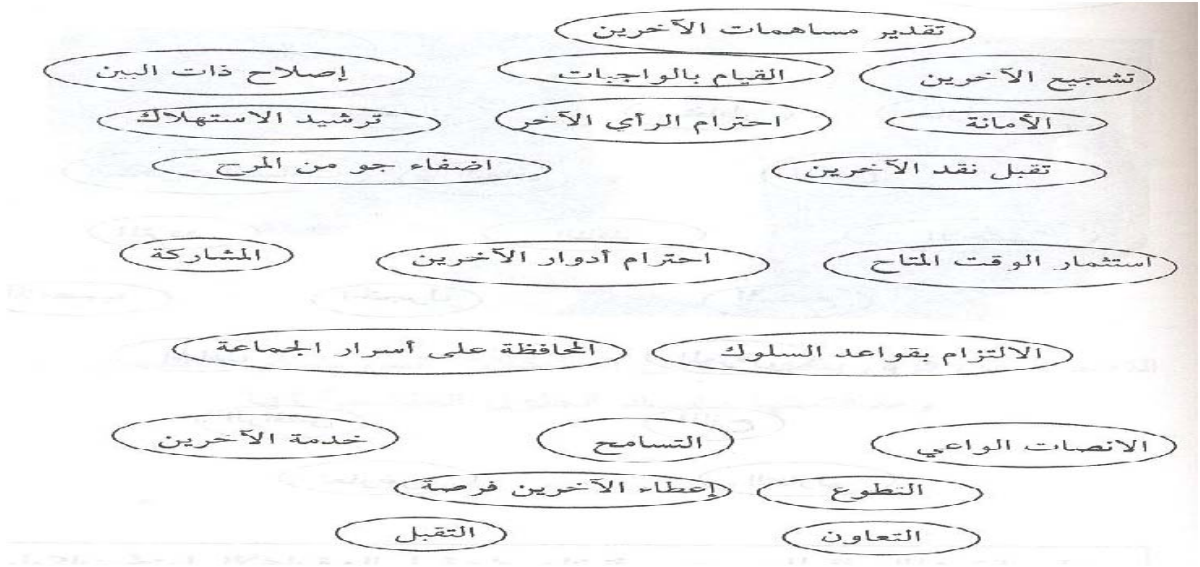 تقدير مساهمات الآخرين
تشجيع الآخرين القيام بالواجبات إصلاح ذات البين
الأمانة احترام الرأي الآخر ترشيد الاستهلاك
تقبل نقد الآخرين اضفاء جو من المرح
استثمار الوقت المتاح احترام أدوار الآخرين المشاركة
الالتزام بقواعد السلوك المحافظة على أسرار الجماعة
الانصات الواعي التسامح خدمة الآخرين
التطوع إعطاء الآخرين فرصة
التعاون التقبل